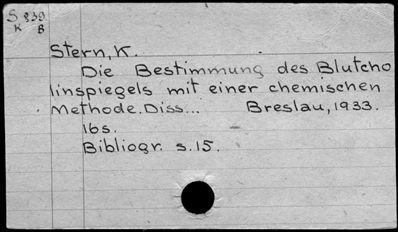 S 839
K B
Stern, K.
Die Bestimmung des Blutcho
linspiegels mit einer chemischen
Methode. Diss... Breslau, 1933.
16s.
Bibliogr. s. 15.